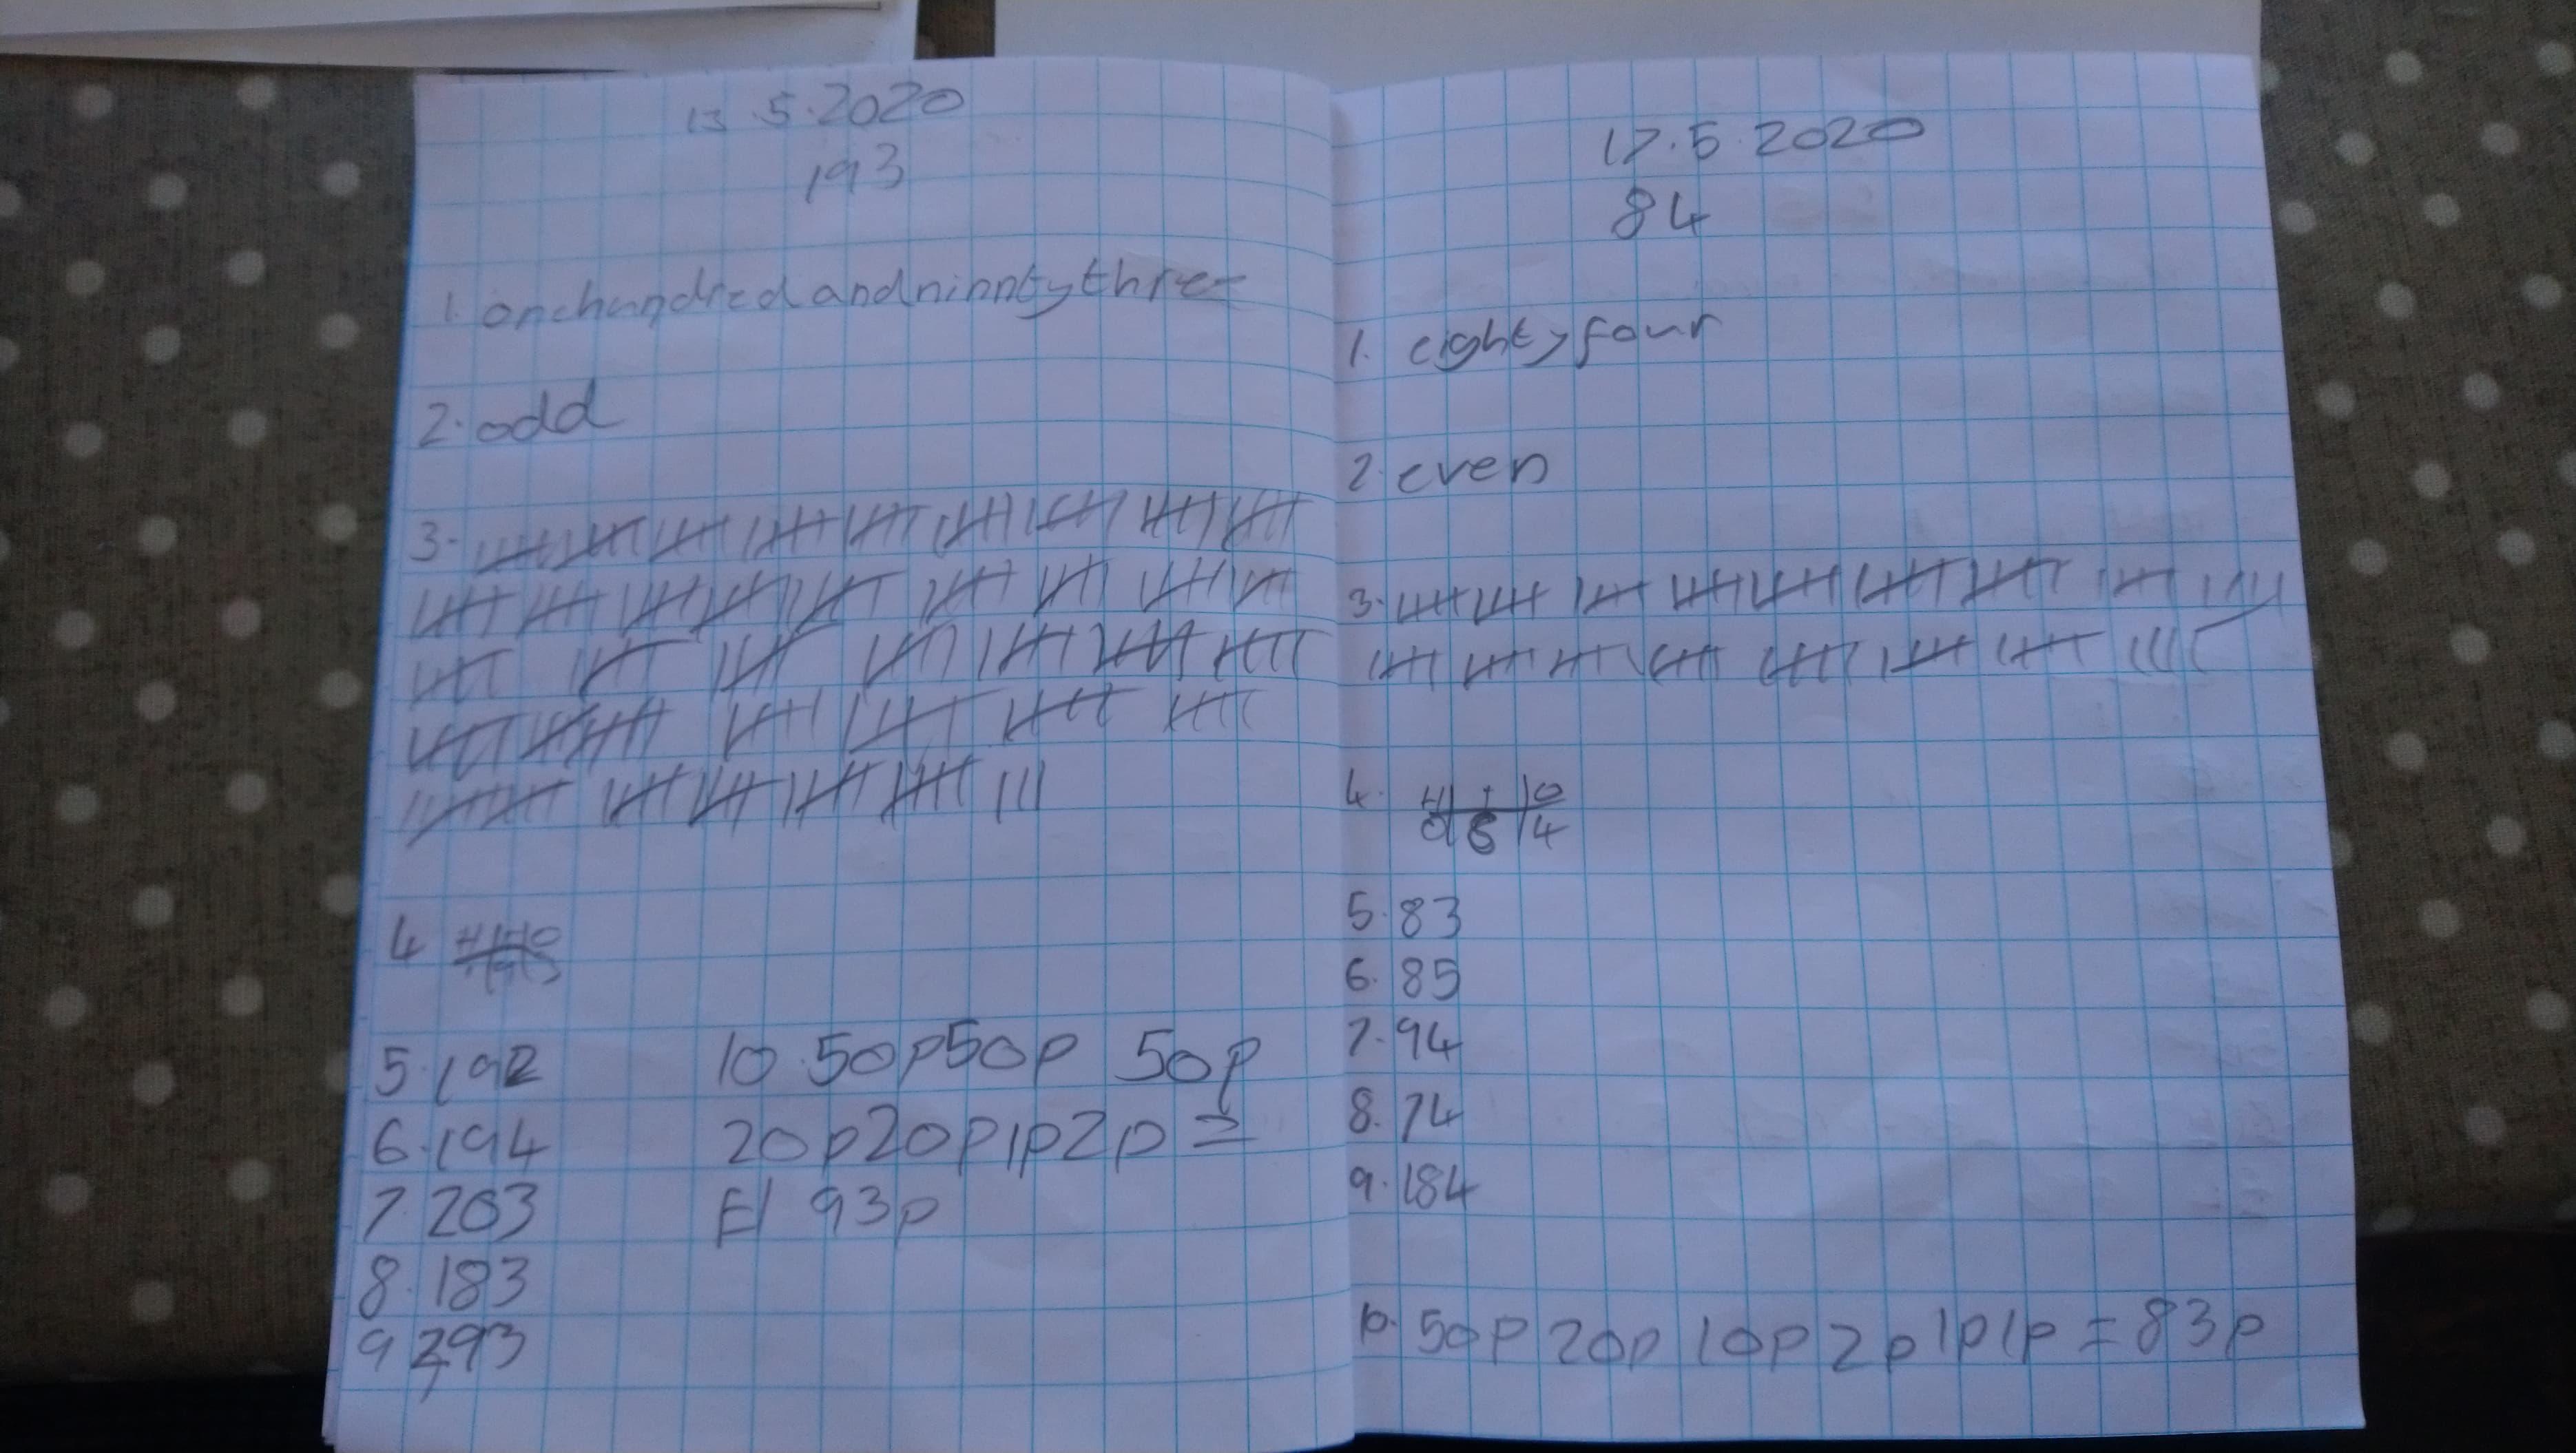 13.5.2020
193
1. onehundred andninntythree
2. odd
3.
4 H T O
1 9 3
5. 192
6. 194
7. 203
8. 183
9 293
10. 50p 50p 50p
20p 20p 1p 2p =
£1 93p
17.5.2020
84
1. eighty four
2. even
3.
4. H T O
0 8 4
5. 83
6. 85
7. 94
8. 74
9. 184
10. 50p 20p 10p 2p 1p 1p = 83p